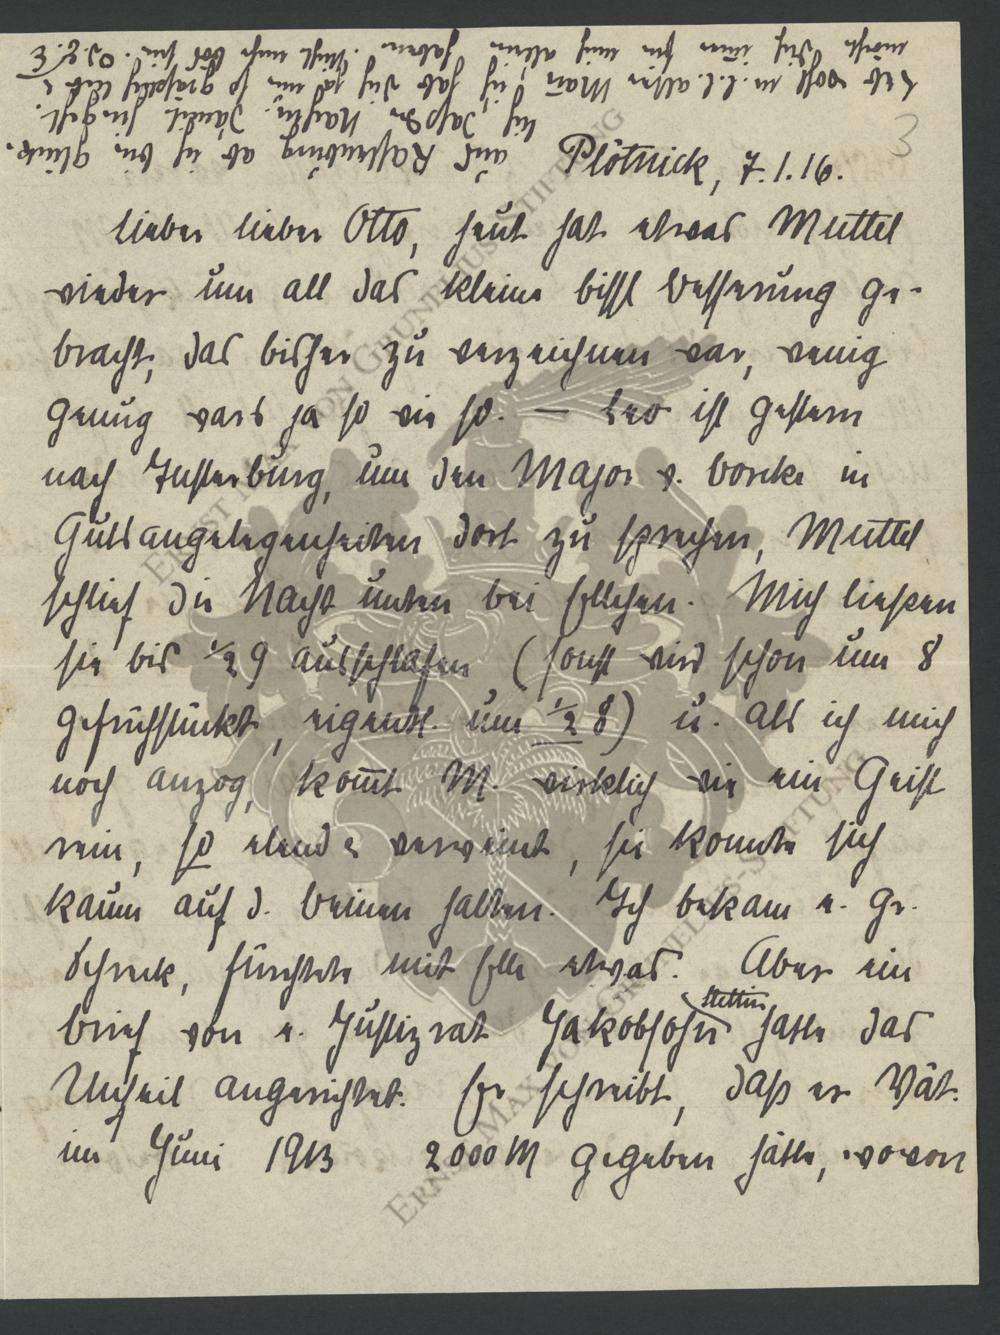 Plötnick, 7.1.16.
3
lieber lieber Otto, heut hat etwas Muttel
wieder um all das kleine bissl Besserung ge-
bracht, das bisher zu verzeichnen war, wenig
genug wars ja so wie so. — Leo ist gestern
nach Insterburg, um den Major v. Borcke in
Gutsangelegenheiten dort zu sprechen, Muttel
schlief die Nacht unten bei Ellchen. Mich ließen
sie bis ½9 ausschlafen (sonst wird schon um 8
gefrühstückt, eigentl. um ½8) u. als ich mich
noch anzog, kom̅t M. wirklich wie ein Geist
rein, so elend & verweint, sie konnte sich
kaum auf d. Beinen halten. Ich bekam e. gr.
Schreck, fürchtete mit Elle etwas. Aber ein
Brief von e. Justizrat Jakobsohn Stettin hatte das
Unheil angerichtet. Er schreibt, daß er Vät.
im Juni 1913 2000 M gegeben hätte, wovon
aus Rastenburg ab ich bin glück-
lich, daß der damit hingeht.
Leb wohl m. l. l. alter Man̅, ich hab dich ja so
möchte dich immer für mich allein haben. Nicht mehr bös sein. D. E.
ERNST MAX VON GRUNELIUS-STIFTUNG
ERNST MAX VON GRUNELIUS-STIFTUNG